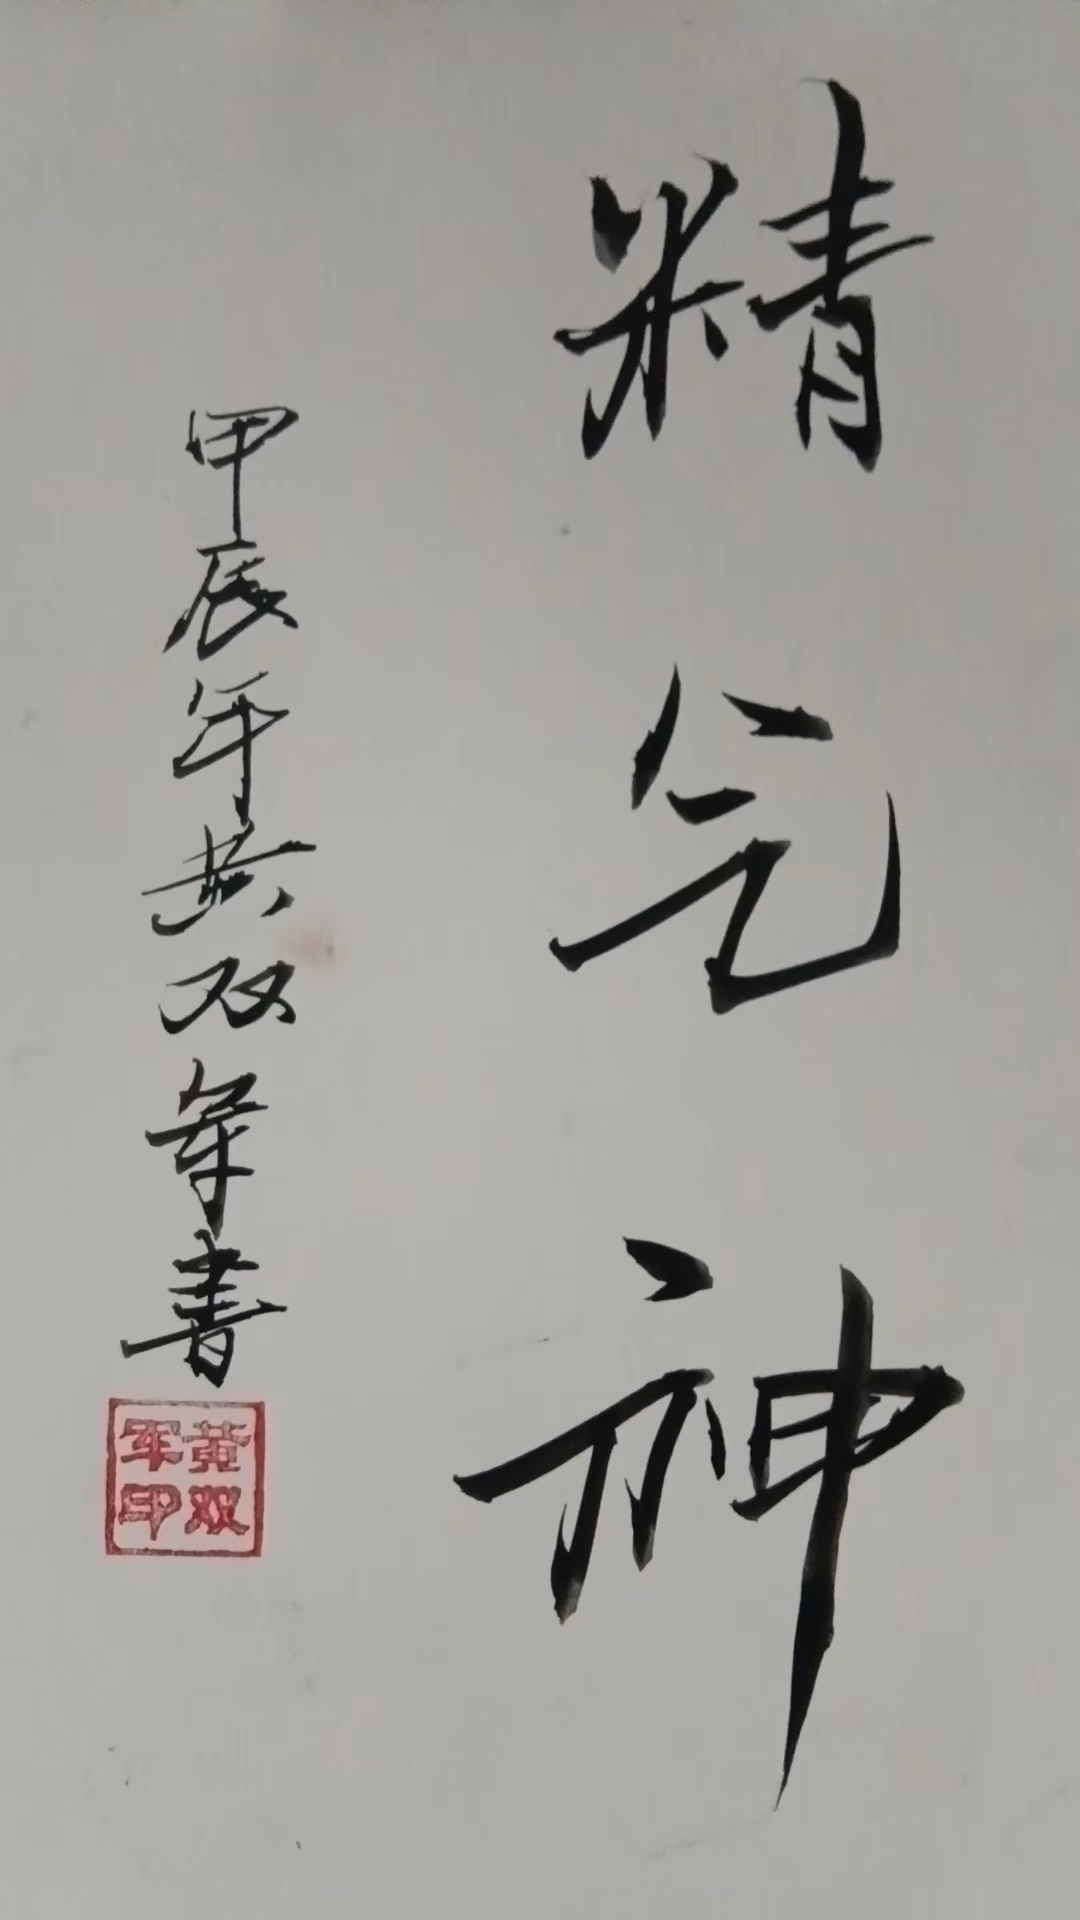 精气神
甲辰年黄双军書
黄双
军印